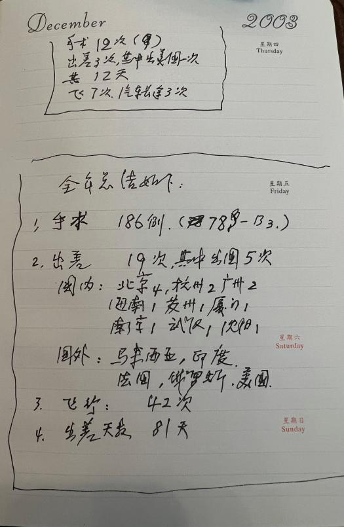 December 2003
星期四
Thursday
手术 12次 (
出差3次,其中出美国一次
共 12天
飞7次.汽车长途3次
星期五
Friday
全年总结如下:
1, 手术 186例.( 78 -B3.)
2. 出差 19次,其中出国5次
国内: 北京4,杭州2 广州2
海南1 苏州1 厦门1
南京1 武汉1 沈阳1
星期六
Saturday
国外: 马来西亚,印度
法国,俄罗斯.美国
3. 飞行: 42次
4. 出差天数 81天
星期日
Sunday